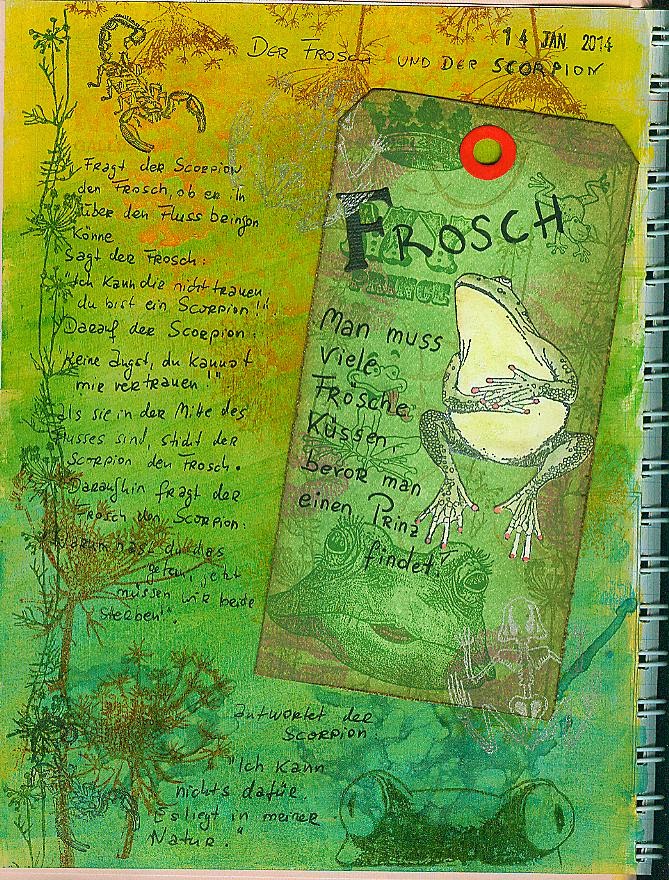 14 JAN 2014
DER FROSCH UND DER SCORPION
Fragt der Scorpion
den Frosch, ob er ihn
über den Fluss bringen
Könne
Sagt der Frosch:
"Ich kann dir nicht trauen
du bist ein Scorpion!!"
Darauf der Scorpion:
"Keine Angst, du kannst
mir vertrauen!"
als sie in der Mitte des
Flusses sind, sticht der
Scorpion den Frosch.
Daraufhin fragt der
Frosch den Scorpion:
"Warum hast du das
getan, jetzt
müssen wir beide
sterben".
Antwortet der
Scorpion
"Ich kann
nichts dafür
Es liegt in meiner
Natur."
FROSCH
Man muss
viele
Frösche
Küssen,
bevor man
einen Prinz
findet!